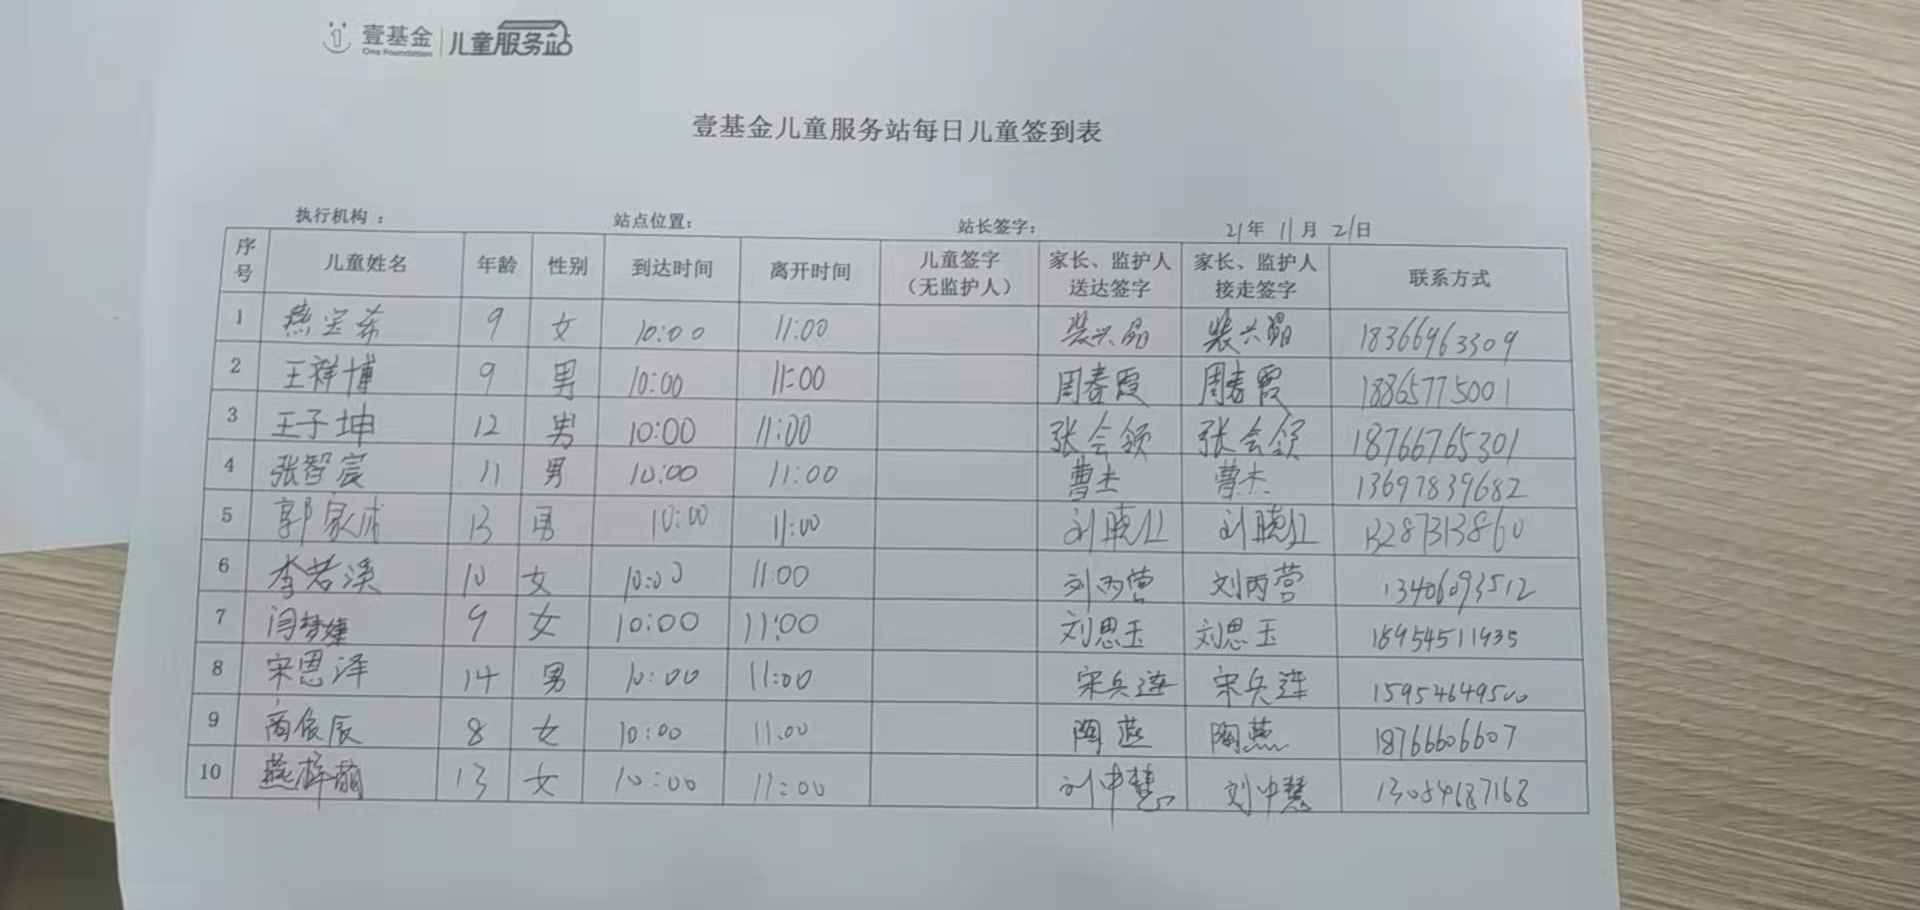 壹基金 儿童服务站
One Foundation
壹基金儿童服务站每日儿童签到表
执行机构： 站点位置： 站长签字： 21年 11月 21日
序号 儿童姓名 年龄 性别 到达时间 离开时间 儿童签字（无监护人） 家长、监护人送达签字 家长、监护人接走签字 联系方式
1 燕宝希 9 女 10:00 11:00 裴兴晶 裴兴晶 18366963309
2 王祥博 9 男 10:00 11:00 周春霞 周春霞 18865775001
3 王子坤 12 男 10:00 11:00 张会领 张会领 18766765301
4 张智宸 11 男 10:00 11:00 曹杰 曹杰 13697839682
5 郭家 13 男 10:00 11:00 刘晓红 刘晓红 13287313860
6 李若溪 10 女 10:00 11:00 刘丙营 刘丙营 13406093512
7 闫梦婕 9 女 10:00 11:00 刘思玉 刘思玉 18954511935
8 宋恩泽 14 男 10:00 11:00 宋兵连 宋兵连 15954649500
9 商依辰 8 女 10:00 11:00 陶燕 陶燕 18766606607
10 燕梓萌 13 女 10:00 11:00 刘中慧 刘中慧 13054687168